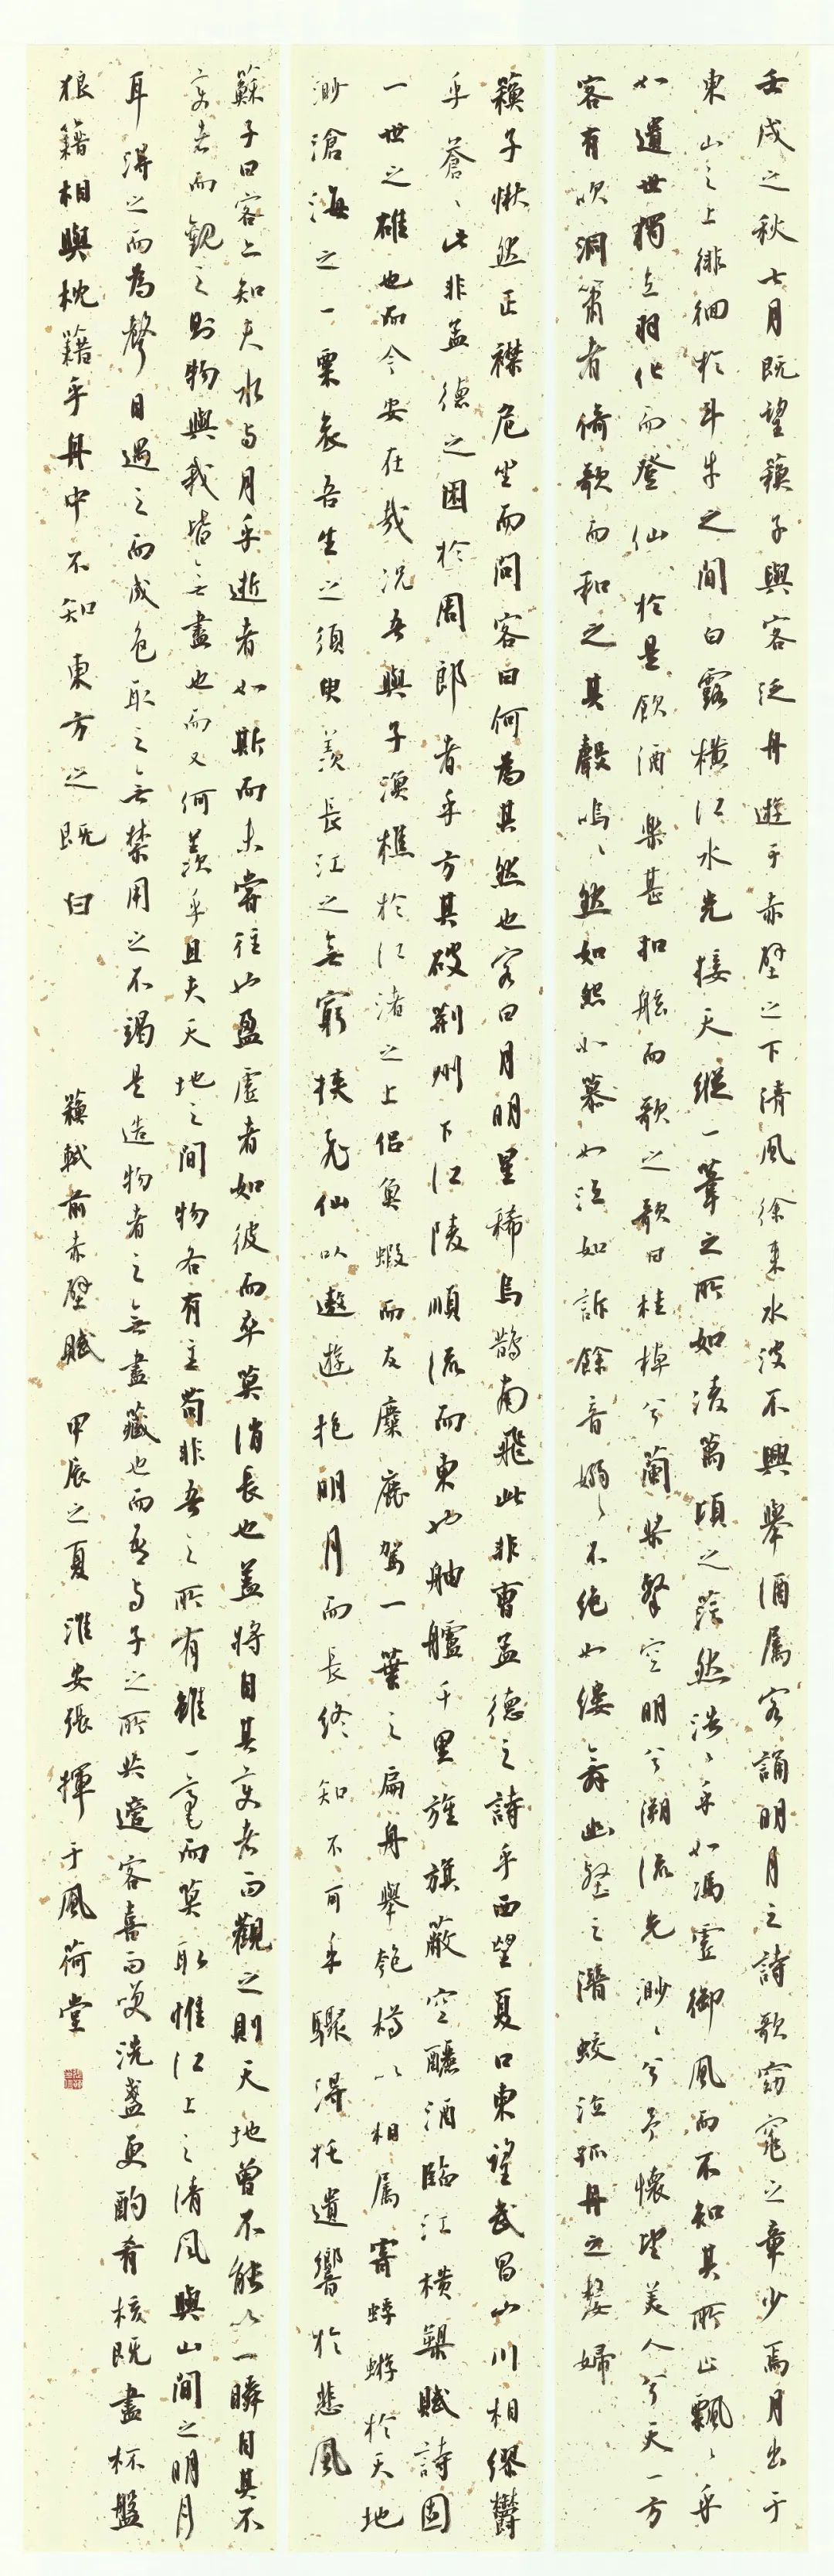 壬戌之秋七月既望蘇子與客泛舟遊于赤壁之下清風徐來水波不興舉酒屬客誦明月之詩歌窈窕之章少焉月出于
東山之上徘徊於斗牛之間白露橫江水光接天縱一葦之所如淩萬頃之茫然浩〻乎如馮虛御風而不知其所止飄〻乎
如遺世獨立羽化而登仙於是飲酒樂甚扣舷而歌之歌曰桂棹兮蘭槳擊空明兮溯流光渺〻兮予懷望美人兮天一方
客有吹洞簫者倚歌而和之其聲嗚〻然如怨如慕如泣如訴餘音嫋〻不絕如縷舞幽壑之潛蛟泣孤舟之嫠婦
蘇子愀然正襟危坐而問客曰何為其然也客曰月明星稀烏鵲南飛此非曹孟德之詩乎西望夏口東望武昌山川相繆鬱
乎蒼〻此非孟德之困於周郎者乎方其破荊州下江陵順流而東也舳艫千里旌旗蔽空釃酒臨江橫槊賦詩固
一世之雄也而今安在哉況吾與子漁樵於江渚之上侶魚蝦而友麋鹿駕一葉之扁舟舉匏樽以相屬寄蜉蝣於天地
渺滄海之一粟哀吾生之須臾羨長江之無窮挾飛仙以遨遊抱明月而長終知不可乎驟得托遺響於悲風
蘇子曰客亦知夫水与月乎逝者如斯而未嘗往也盈虛者如彼而卒莫消長也蓋將自其變者而觀之則天地曾不能以一瞬自其不
變者而觀之則物與我皆無盡也而又何羨乎且夫天地之間物各有主苟非吾之所有雖一毫而莫取惟江上之清風與山間之明月
耳得之而為聲目遇之而成色取之無禁用之不竭是造物者之無盡藏也而吾与子之所共適客喜而笑洗盞更酌肴核既盡杯盤
狼籍相與枕籍乎舟中不知東方之既白 蘇軾前赤壁賦 甲辰之夏淮安張揮于風荷堂